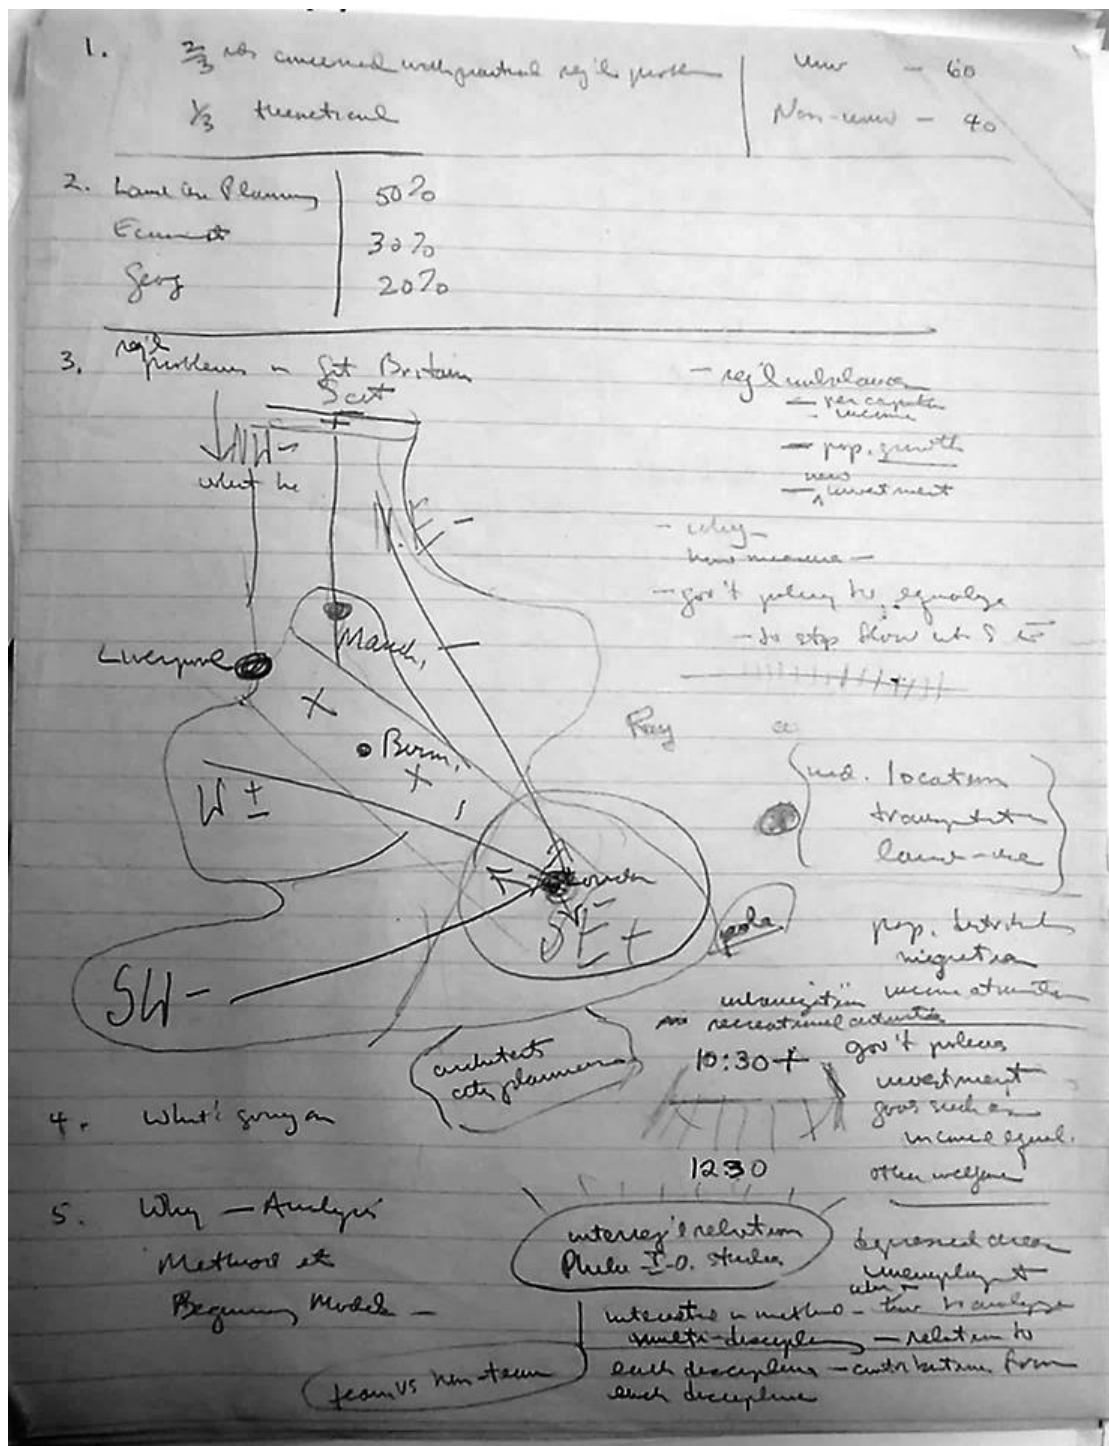 1. 2/3 rds concerned with practical reg'l problem
1/3 theoretical
Univ — 60
Non-univ — 40
2. Land Use Planning 50%
Economist 30%
Geog 20%
3. reg'l problems in Gt Britain
Scot
NW -
what he
N.E -
Manch, -
Liverpool
X
Birm,
X
W ±
London
SE +
SW -
- reg'l imbalances
- per capita
- income
- pop. growth
new
- investment
- why
how measure -
- gov't policy to equalize
- to stop flow into S E
ind. location
transportation
land-use
pop. distribution
migration
urbanization
recreational activities
gov't policies
investment
goals such as
income equal.
other welfare
architects
city planners
10:30
1230
4. What's going on
5. Why — Analysis
Method etc
Beginning Models —
interreg'l relation
Phila I-O. Studies
depressed area
unemployment
interested in method - how to analyze
multi-discipline — relation to
each discipline — contribution from
each discipline
team vs non-team